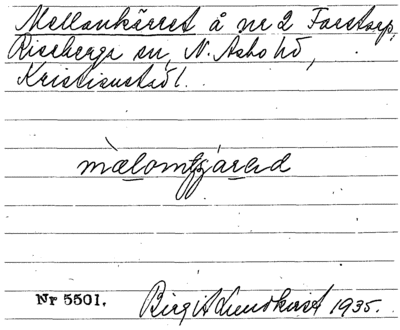 Mellankärret å nr 2 Farstorp,
Riseberga sn, N. Åsbo hd,
Kristianstads l.
Nr 5501. Birgit Lundkvist 1935.